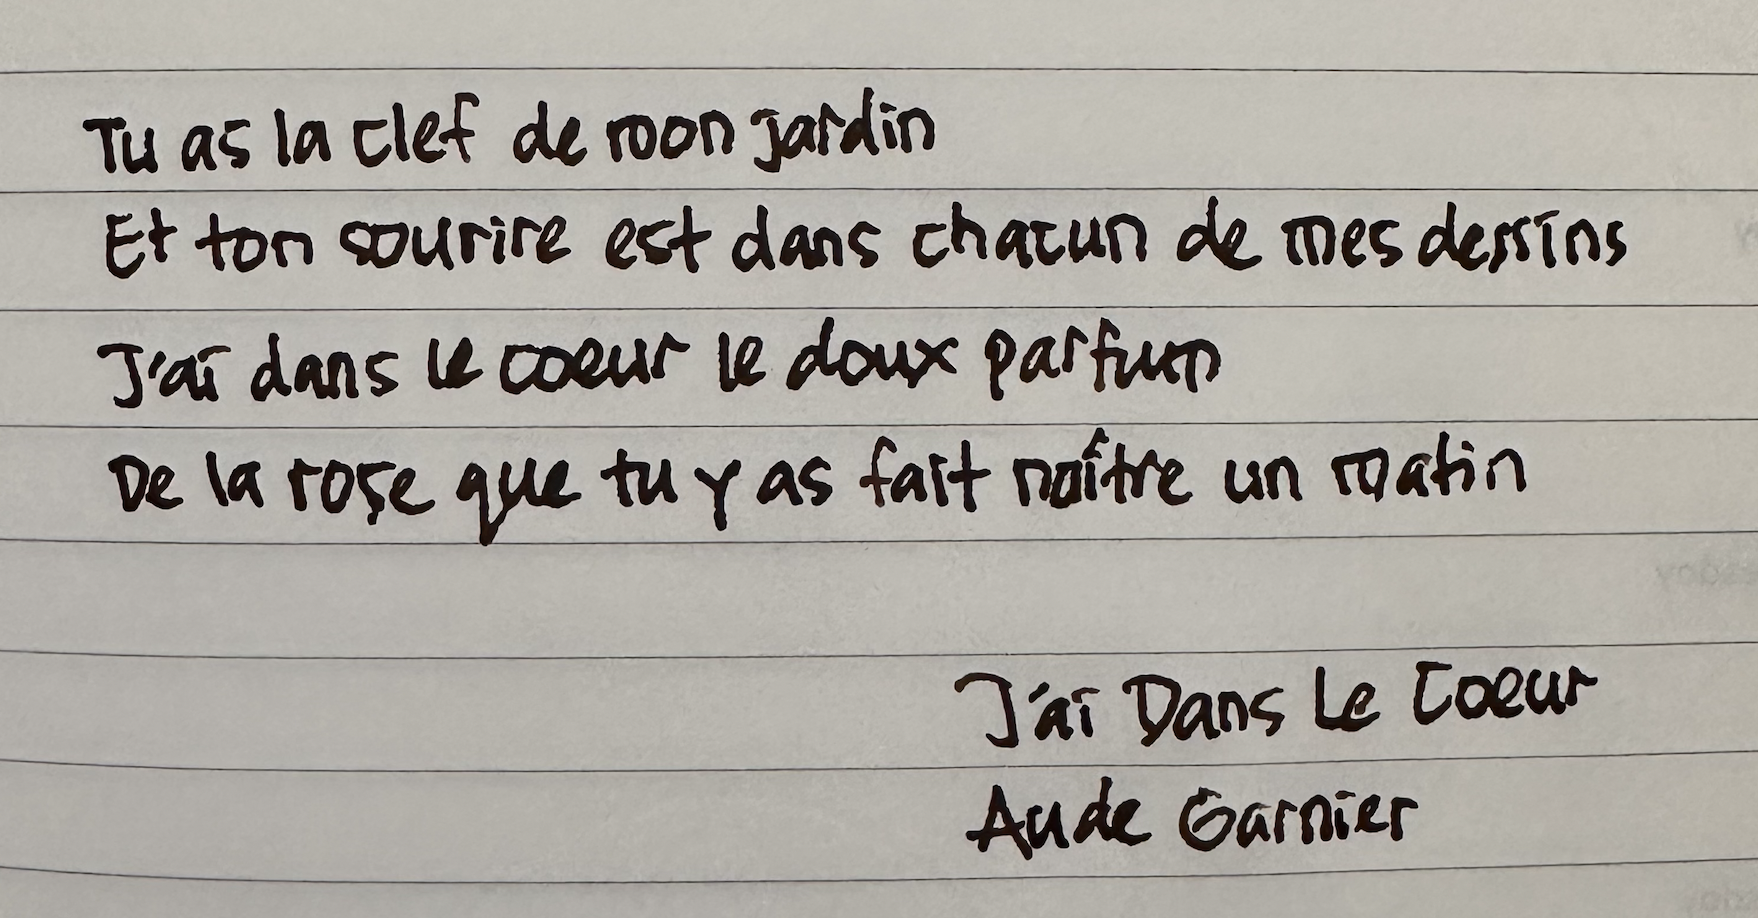 Tu as la clef de mon jardin
Et ton sourire est dans chacun de mes dessins
J'ai dans le coeur le doux parfum
De la rose que tu y as fait naître un matin
J'ai Dans Le Coeur
Aude Garnier